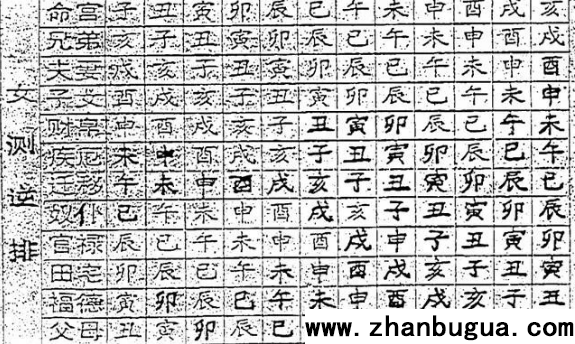 女测逆排
命宫 子 丑 寅 卯 辰 巳 午 未 申 酉 戌 亥
兄弟 亥 子 丑 寅 卯 辰 巳 午 未 申 酉 戌
夫妻 戌 亥 子 丑 寅 卯 辰 巳 午 未 申 酉
子女 酉 戌 亥 子 丑 寅 卯 辰 巳 午 未 申
财帛 申 酉 戌 亥 子 丑 寅 卯 辰 巳 午 未
疾厄 未 申 酉 戌 亥 子 丑 寅 卯 辰 巳 午
迁移 午 未 申 酉 戌 亥 子 丑 寅 卯 辰 巳
奴仆 巳 午 未 申 酉 戌 亥 子 丑 寅 卯 辰
官禄 辰 巳 午 未 申 酉 戌 申 子 丑 寅 卯
田宅 卯 辰 巳 午 未 申 酉 戌 亥 子 丑 寅
福德 寅 卯 辰 巳 午 未 申 酉 戌 亥 子 丑
父母 丑 寅 卯 辰 巳
www.zhanbugua.com